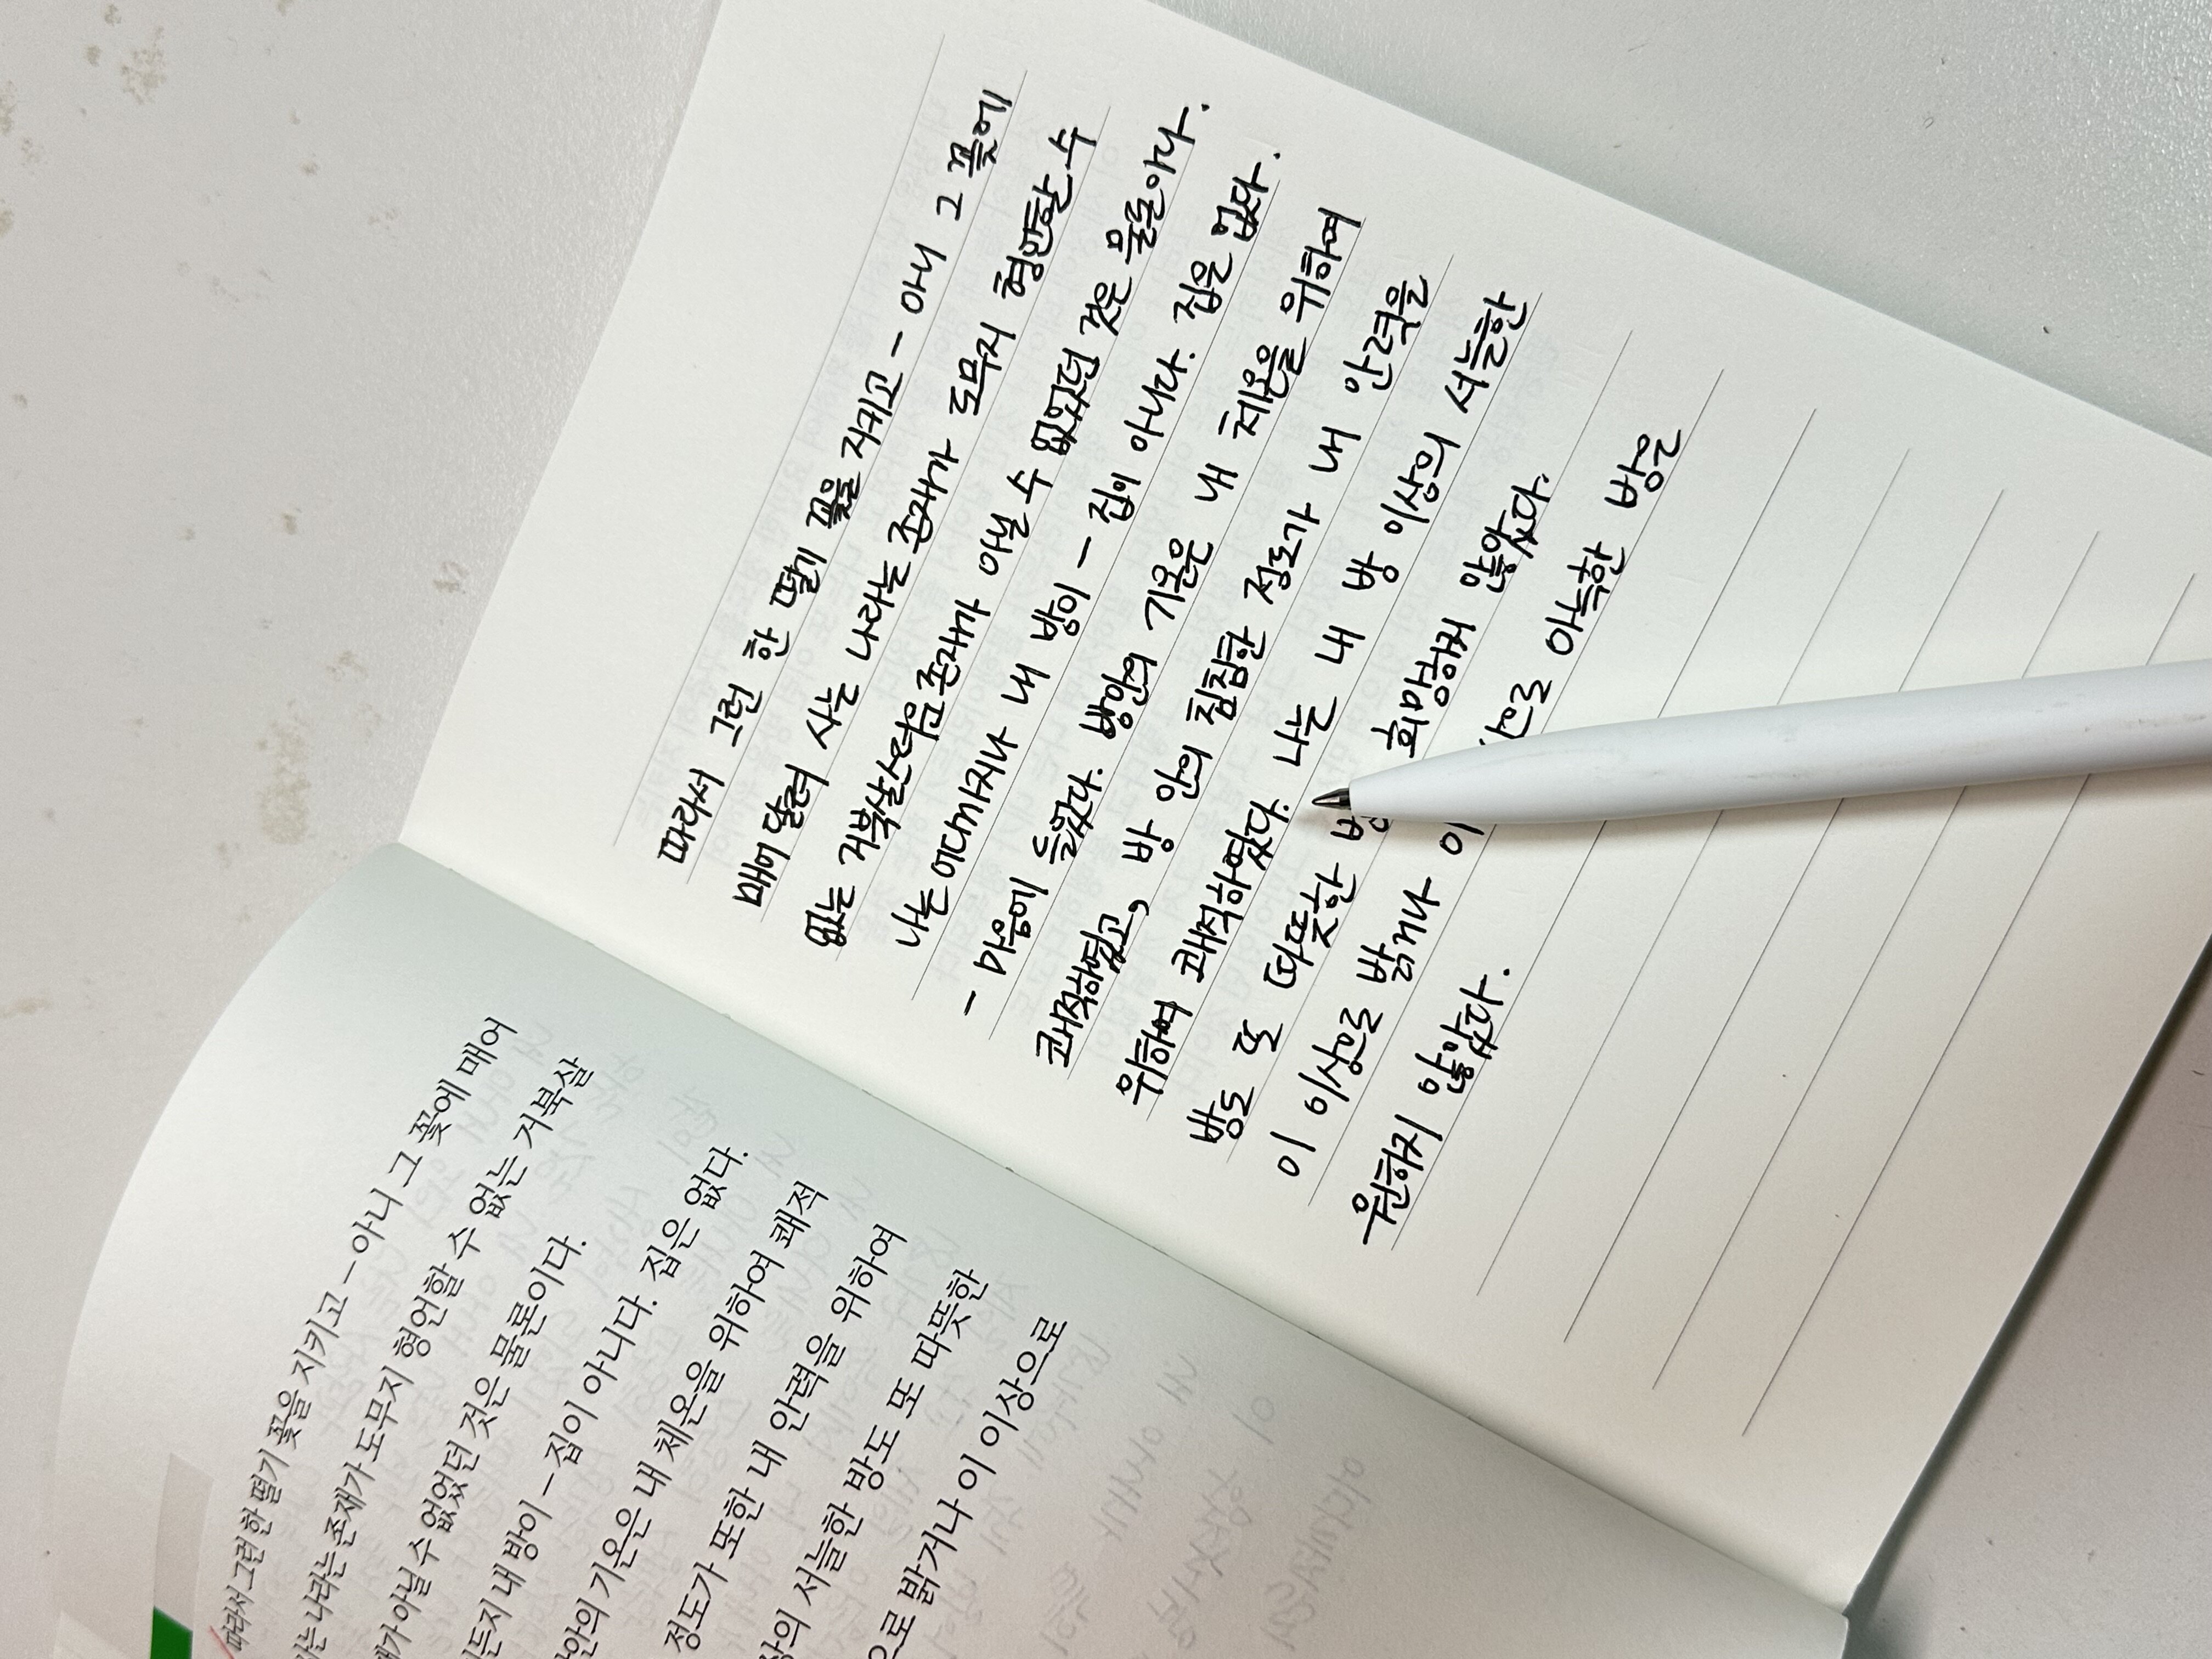 따라서 그런 한 떨기 꽃을 지키고 — 아니 그 꽃에 매어
나라는 존재가 도무지 형언할 수 없는 거북살
아닐 수 없었던 것은 물론이다.
내 방이 — 집이 아니다. 집은 없다.
기온은 내 체온을 위하여 쾌적
정도가 또한 내 안력을 위하여
서늘한 방도 또 따뜻한
밝거나 이 이상으로
따라서 그런 한 떨기 꽃을 지키고 - 아니 그 꽃에
매어달려 사는 나라는 존재가 도무지 형언할 수
없는 거북살스러운 존재가 아닐 수 없었던 것은 물론이다.
나는 어디까지나 내 방이 - 집이 아니다. 집은 없다.
- 마음에 들었다. 방안의 기온은 내 체온을 위하여
쾌적하였고, 방 안의 침침한 정도가 내 안력을
위하여 쾌적하였다. 나는 내 방 이상의 서늘한
방도 또 따뜻한 희망하지 않았다.
이 이상으로 밝거나 이 아늑한 방은
원하지 않았다.